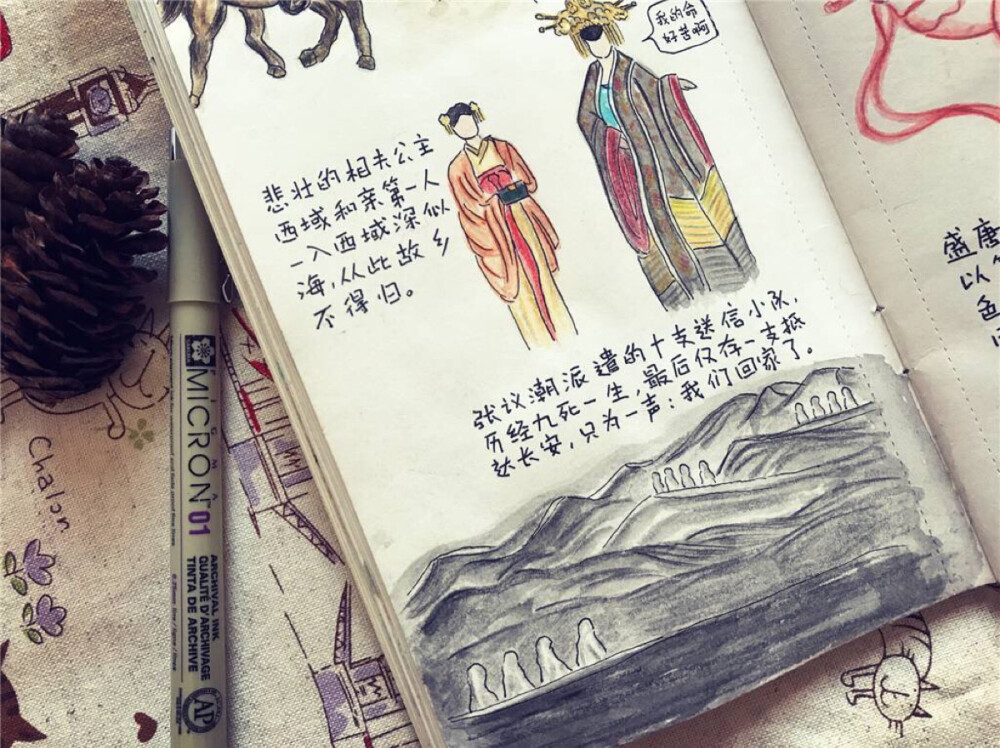 我的命
好苦啊
悲壮的相夫公主
西域和亲第一人
一入西域深似
海,从此故乡
不得归。
张议潮派遣的十支送信小队,
历经九死一生,最后仅存一支抵
达长安,只为一声:我们回家了。
盛唐
以
色
SIGMA
MICRON 01
ARCHIVAL INK
QUALITÉ D'ARCHIVAGE
TINTA DE ARCHIVE
AP
Chalon